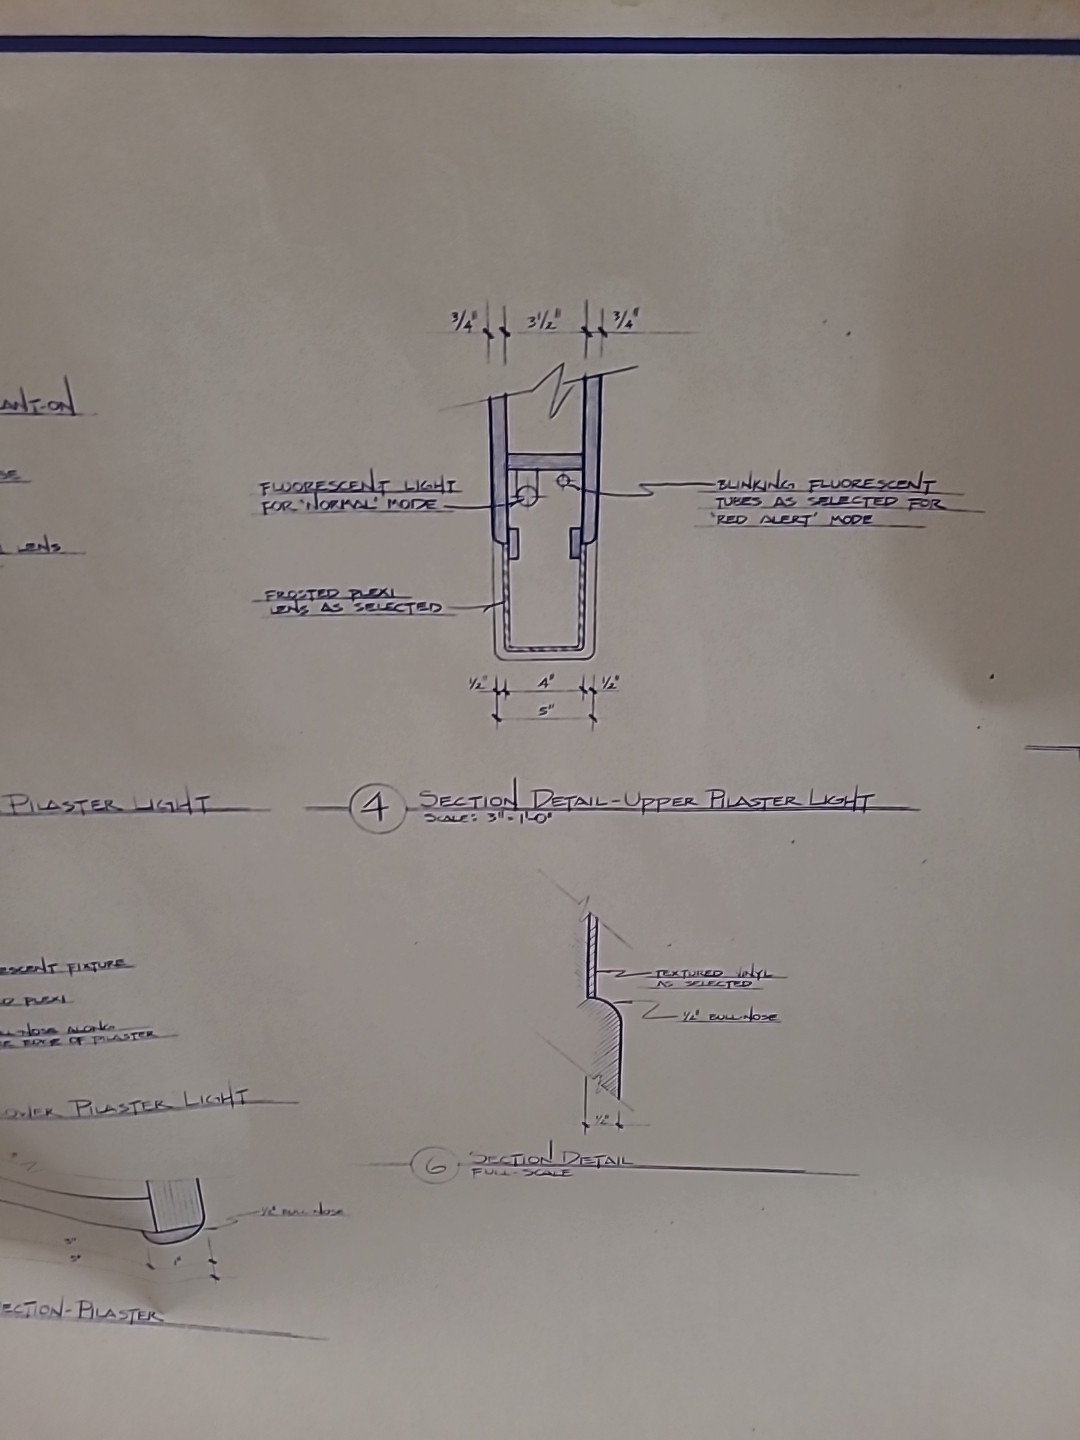 3/4" 3 1/2" 3/4"
ANT-ON
SE
LENS
FLUORESCENT LIGHT
FOR 'NORMAL' MODE
BLINKING FLUORESCENT
TUBES AS SELECTED FOR
'RED ALERT' MODE
FROSTED PLEXI
LENS AS SELECTED
1/2" 4" 1/2"
5"
PILASTER LIGHT
4 SECTION DETAIL-UPPER PILASTER LIGHT
SCALE: 3"=1'-0"
ESCENT FIXTURE
D PLEXI
LL-NOSE ALONG
EDGE OF PILASTER
TEXTURED VINYL
AS SELECTED
1/2" BULL-NOSE
1/2"
OWER PILASTER LIGHT
6 SECTION DETAIL
FULL-SCALE
1/2" BULL-NOSE
3"
5"
1"
ECTION-PILASTER